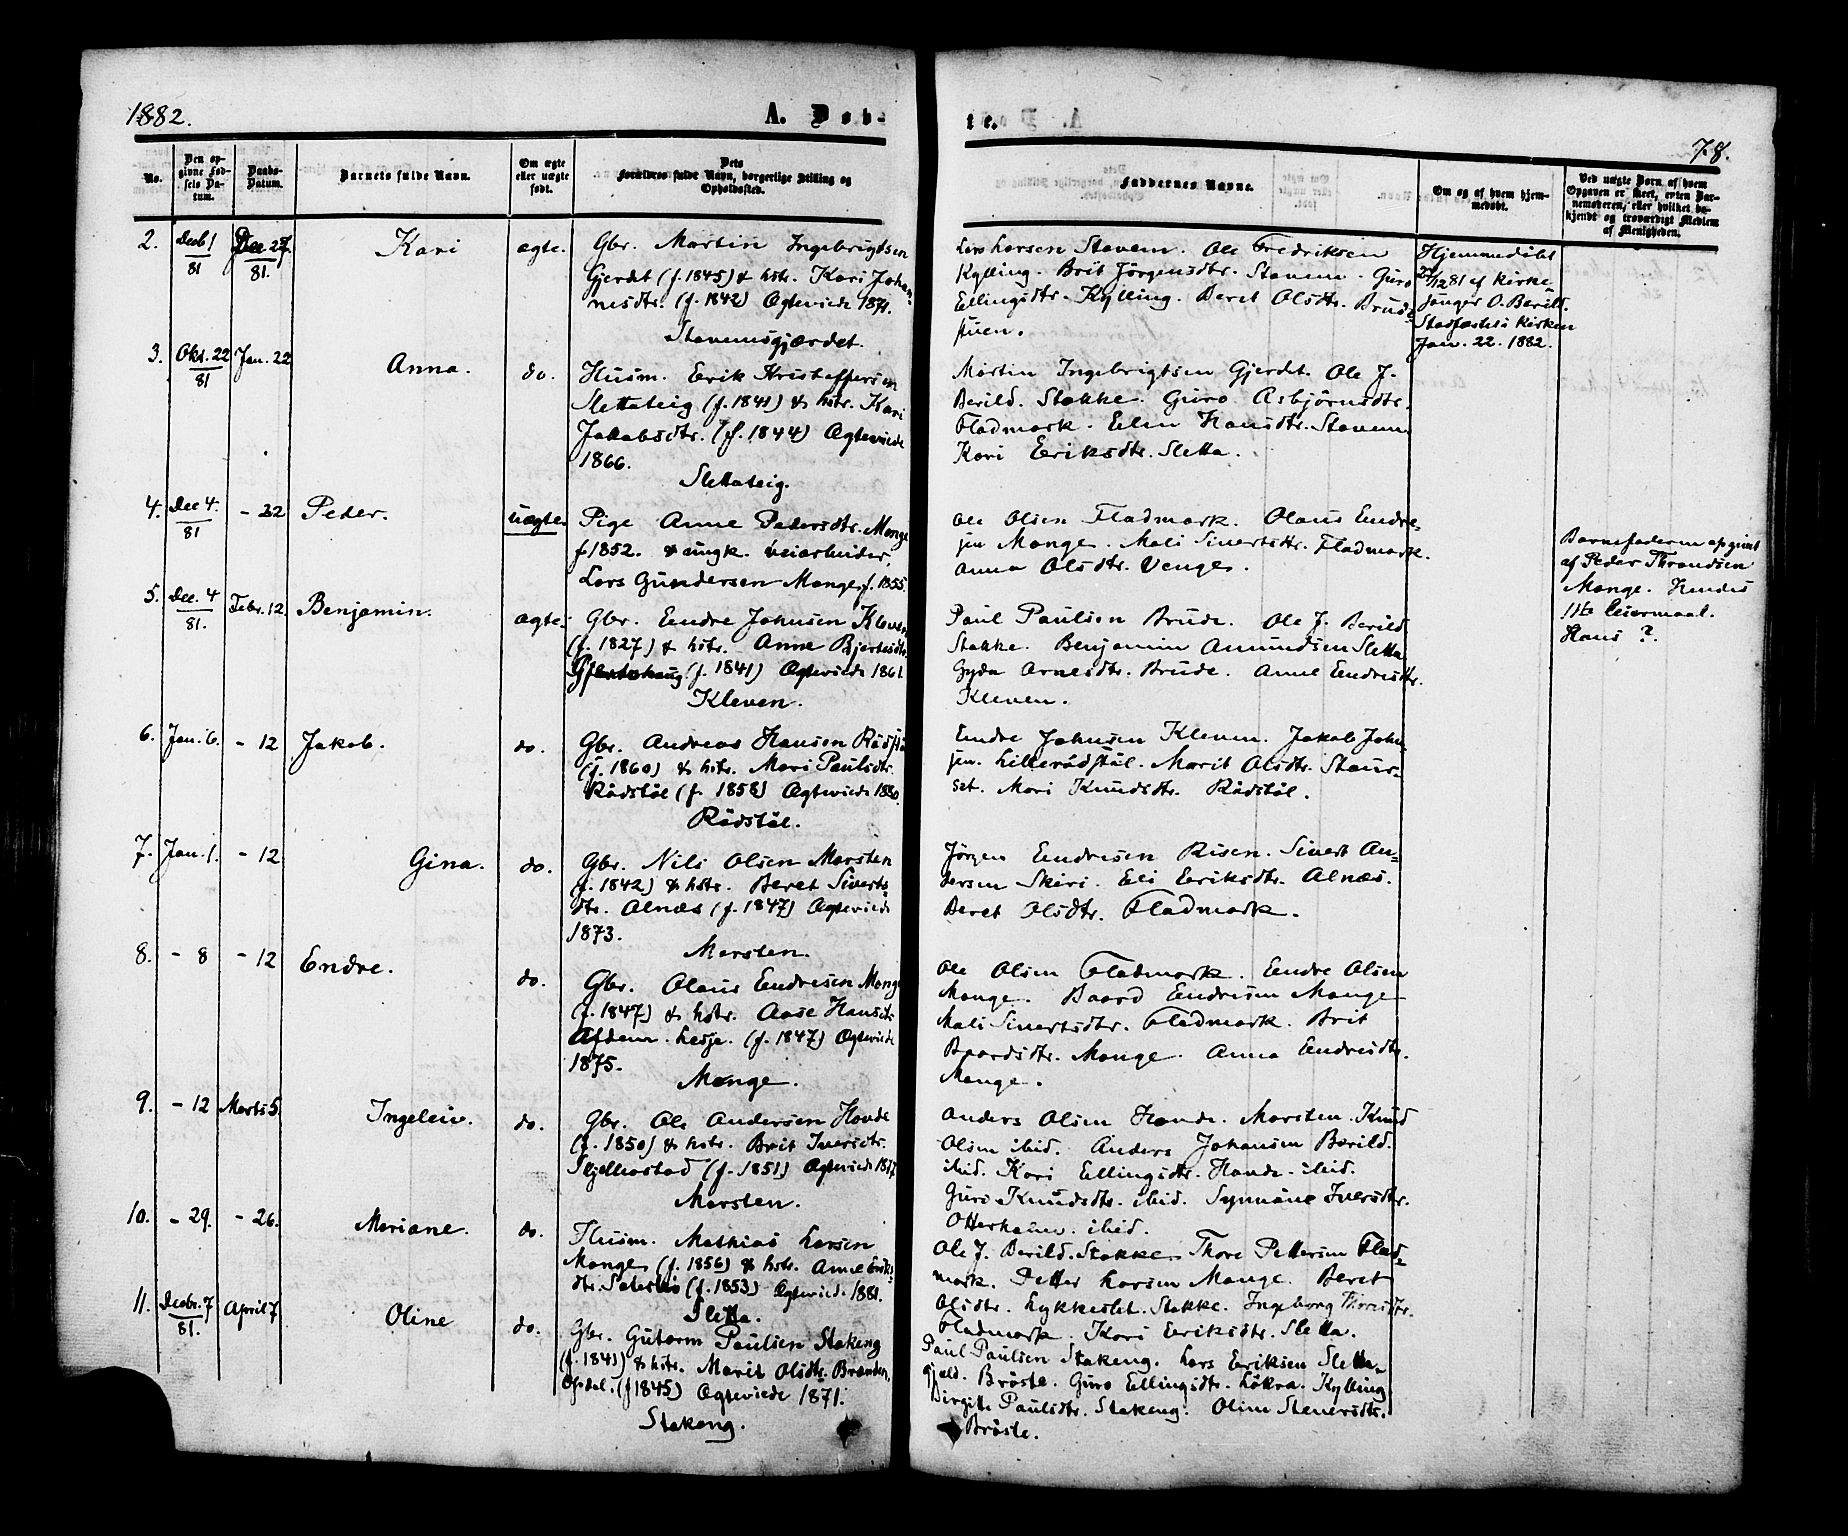 1882.
A. Døb-
te.
78.
No.
Den op-
givne Fød-
sels Da-
tum.
Daabs-
Datum.
Barnets fulde Navn.
Om ægte
eller uægte
født.
Dets
Forældres fulde Navn, borgerlige Stilling og
Opholdssted.
Faddernes Navne.
Om og af hvem hjem-
medøbt.
Ved uægte Børn, af hvem
Opgaven er skeet, enten Bar-
nemoderen, eller hvilket be-
kjendt og troværdigt Medlem
af Menigheden.
2.
Decb 1
81
Dec 27
81.
Kari
ægte.
Gbr. Martin Ingebrigtsen
Gjerdet (f. 1845) & hstr. Kari Johan-
nesdtr. (f. 1842) Ægteviede 1871.
Stavemsgjærdet.
Lars Larsen Stavem. Ole Fredriksen
Kylling. Brit Jörgensdtr. Stavem. Guro
Ellingsdtr. Kylling. Beret Olsdtr. Brude-
stuen.
Hjemmedöbt
27/12 81 af Kirke-
sanger O. Berild.
Stadfæstet i Kirken
Jan. 22. 1882.
3.
Okt. 22
81
Jan. 22
Anna.
do.
Husm. Erik Kristoffersen
Slettateig (f. 1841) & hstr. Kari
Jakobsdtr. (f. 1844) Ægteviede
1866.
Slettateig.
Martin Ingebrigtsen Gjerdet. Ole J.
Berild. Stokke. Guro Asbjörnsdtr.
Fladmark. Eelin Hansdtr. Stavem
Kari Eriksdtr. Sletta.
4.
Dec 4.
81
- 22
Peder.
uægte.
Pige Anne Pedersdtr. Monge
f 1852. & ungk. Veiarbeider,
Lars Gundersen Monge, f. 1855.
Ole Olsen Fladmark. Olaus Endre-
sen Monge. Mali Sivertsdtr. Fladmark.
Anna Olsdtr. Venge.
Barnefaderen opgivet
af Peder Throndsen
Monge. Hendes
1ste Leiermaal.
Hans ?.
5.
Dec. 4
81.
Febr. 12.
Benjamin.
ægte.
Gbr. Endre Johnsen Kleven
(f. 1827) & hstr. Anne Bjertesdtr.
(f. 1841) Ægteviede 1861.
Kleven.
Paul Paulsen Brude. Ole J. Berild
Stokke. Benjamin Amundsen Sletta
Gyda Arnesdtr. Brude. Anne Endresdtr.
Kleven.
6.
Jan. 6.
- 12
Jakob.
do.
Gbr. Andreas Hansen Rödstöl
(f. 1860) & hstr. Mari Paulsdtr.
Rödstöl (f. 1858) Ægteviede 1880.
Rödstöl.
Endre Johnsen Kleven. Jakob John-
sen. Lillerödstöl. Marit Olsdtr. Staur-
set. Mari Knudsdtr. Rödstöl.
7.
Jan. 1.
- 12
Gina.
do.
Gbr. Nils Olsen Marsten
(f. 1842) & hstr. Beret Siverts-
dtr. Alnæs (f. 1847) Ægteviede
1873.
Marsten.
Jörgen Endresen Risen. Sivert An-
dersen Skiri. Eli Eriksdtr. Alnæs.
Beret Olsdtr. Fladmark.
8.
- 8
- 12
Endre.
do.
Gbr. Olaus Endresen Monge
(f. 1847) & hstr. Aase Hansdtr
Afdem. Lesje. (f. 1847) Ægteviede
1875.
Monge.
Ole Olsen Fladmark. Endre Olsen
Monge. Baard Endresen Monge
Mali Sivertsdtr. Fladmark. Brit
Baardsdtr. Monge. Anna Endresdtr.
Monge.
9.
- 12
Marts 5
Ingeleiv.
do.
Gbr. Ole Andersen Hovde
(f. 1850) & hstr. Brit Iversdtr.
(f. 1851) Ægteviede 1877
Marsten.
Anders Olsen Hovde. Marsten. Knud
Olsen ibid. Anders Johansen Berild.
ibid. Kari Ellingsdtr. Hovde. ibid.
Guri Knudsdtr. ibid. Synnöve Iversdtr.
ibid.
10.
- 29.
- 26.
Mariane.
do.
Husm. Mathias Larsen
Monge (f. 1856) & hstr. Anne Eriks-
dtr. (f. 1853) Ægteviede 1881.
Sletta.
Ole J. Berild. Stokke. Thore Pettersen Flad-
mark. Petter Larsen Monge. Beret
Olsdtr. Lykkeslet. Stokke. Ingeborg Thoresdtr.
Fladmark. Kari Eriksdtr. Sletta.
11.
Decbr. 7
81.
April 7
Oline
do.
Gbr. Gutorm Paulsen Stakeng
(f. 1841) & hstr. Marit Olsdtr. Brænden,
Opdal. (f 1845) Ægteviede 1871.
Stakeng.
Paul Paulsen Stakeng. Lars Eriksen Sletta-
gjeld. Bröste. Guro Ellingsdtr. Lökra. Kylling
Birgitte Paulsdtr. Stakeng. Oline Stenersdtr.
Bröste.